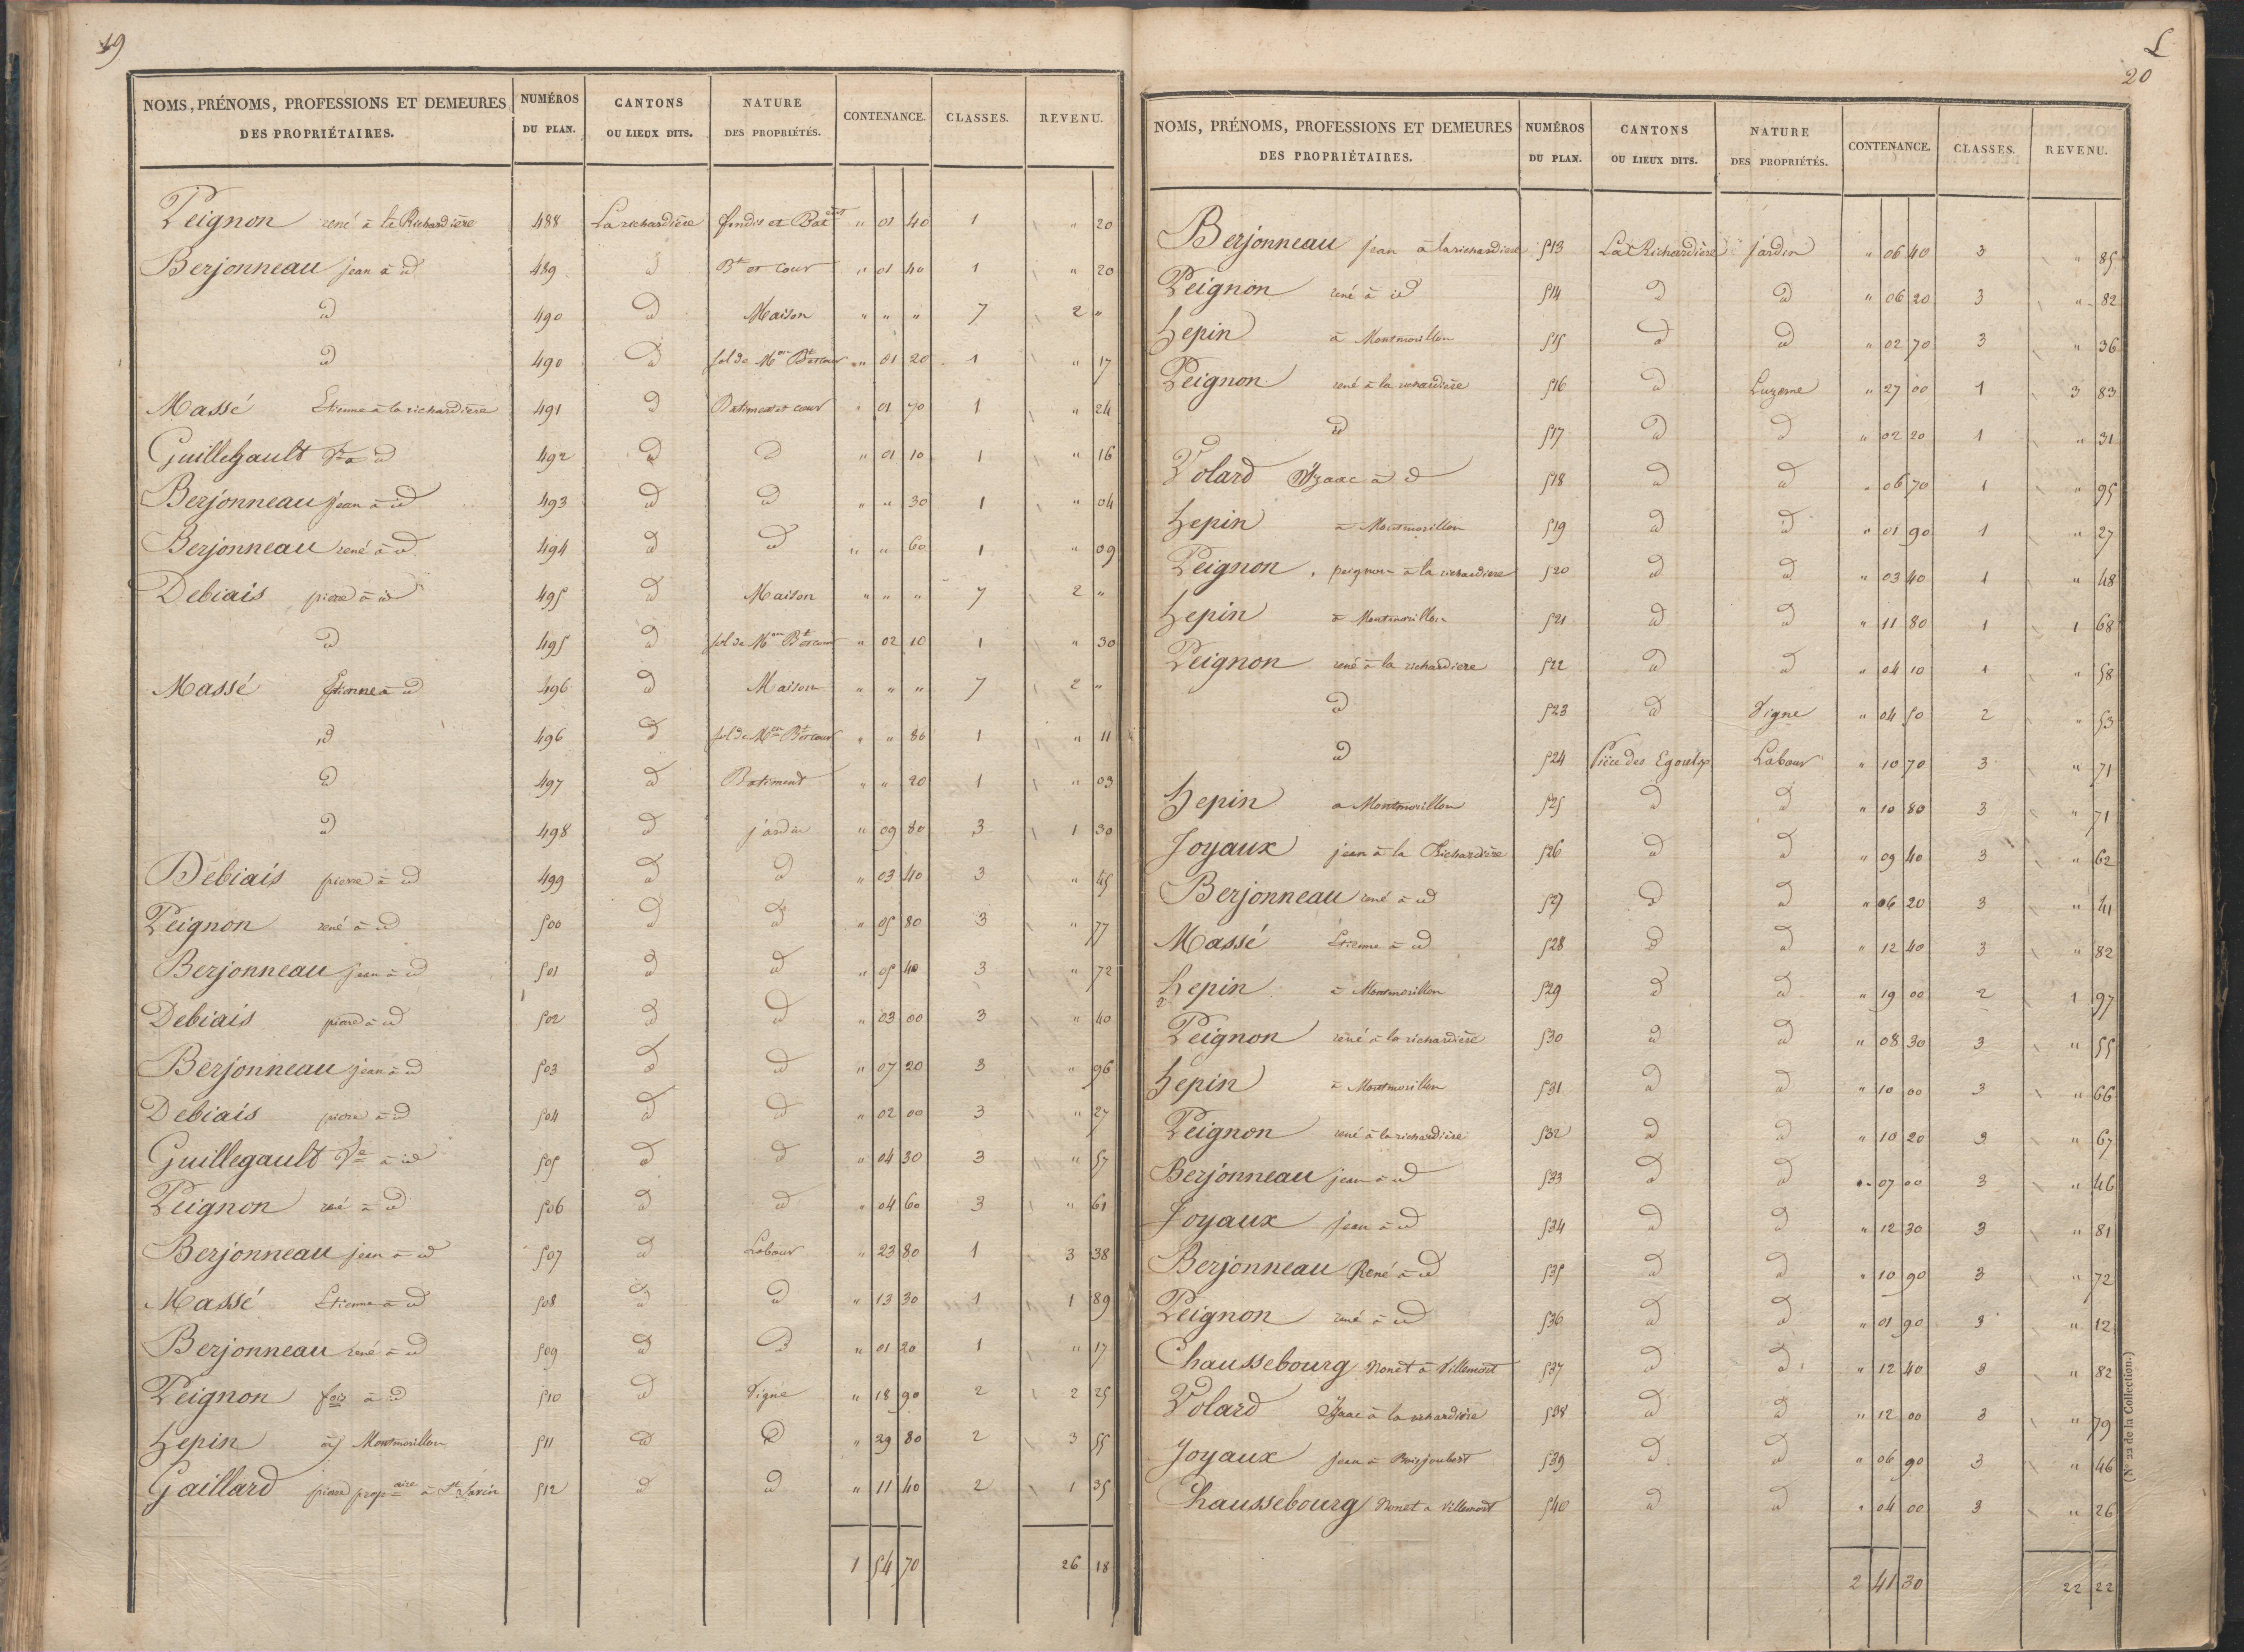 19
NOMS, PRÉNOMS, PROFESSIONS ET DEMEURES DES PROPRIÉTAIRES. NUMÉROS DU PLAN. CANTONS OU LIEUX DITS. NATURE DES PROPRIÉTÉS. CONTENANCE. CLASSES. REVENU.
Peignon rené à la Richardière 488 La richardière fondis et Bat " 01 40 1 " 20
Berjonneau jean à id 489 id Bt et Cour " 01 40 1 " 20
id 490 id Maison " " " 7 2 "
id 490 id sol de Mon Bt et cour " 01 20 1 " 17
Massé Etienne à la richardière 491 id Batiment et cour " 01 70 1 " 24
Guillegault Ve à id 492 id id " 01 10 1 " 16
Berjonneau jean à id 493 id id " " 30 1 " 04
Berjonneau rené à id 494 id id " " 60 1 " 09
Debiais pierre à id 495 id Maison " " " 7 2 "
id 495 id sol de Mon Bt et cour " 02 10 1 " 30
Massé Etienne à id 496 id Maison " " " 7 2 "
id 496 id sol de Mon Bt et cour " " 80 1 " 11
id 497 id Batiment " " 20 1 " 03
id 498 id jardin " 09 80 3 1 30
Debiais pierre à id 499 id id " 03 40 3 " 45
Peignon rené à id 500 id id " 05 80 3 " 77
Berjonneau jean à id 501 id id " 05 40 3 " 72
Debiais pierre à id 502 id id " 03 00 3 " 40
Berjonneau jean à id 503 id id " 07 20 3 " 96
Debiais pierre à id 504 id id " 02 00 3 " 27
Guillegault Ve à id 505 id id " 04 30 3 " 57
Peignon rené à id 506 id id " 04 60 3 " 61
Berjonneau jean à id 507 id Labour " 23 80 1 3 38
Massé Etienne à id 508 id id " 13 30 1 1 89
Berjonneau rené à id 509 id id " 01 20 1 " 17
Peignon fois à id 510 id Vigne " 18 90 2 2 25
Lepin à Montmorillon 511 id id " 29 80 2 3 55
Gaillard pierre propaire à St Savin 512 id id " 11 40 2 1 35
1 54 70 26 18
L
20
NOMS, PRÉNOMS, PROFESSIONS ET DEMEURES DES PROPRIÉTAIRES. NUMÉROS DU PLAN. CANTONS OU LIEUX DITS. NATURE DES PROPRIÉTÉS. CONTENANCE. CLASSES. REVENU.
Berjonneau jean à la richardiere 513 La Richardière jardin " 06 40 3 " 85
Peignon rené à id 514 id id " 06 20 3 " 82
Lepin à Montmorillon 515 id id " 02 70 3 " 36
Peignon rené à la richardière 516 id Luzerne " 27 00 1 3 83
id 517 id id " 02 20 1 " 31
Volard Izaac à id 518 id id " 06 70 1 " 95
Lepin à Montmorillon 519 id id " 01 90 1 " 27
Peignon peignon à la richardiere 520 id id " 03 40 1 " 48
Lepin à Montmorillon 521 id id " 11 80 1 1 68
Peignon rené à la richardiere 522 id id " 04 10 1 " 58
id 523 id Vigne " 04 50 2 " 53
id 524 Pièce des Egouts Labour " 10 70 3 " 71
Lepin a Montmorillon 525 id id " 10 80 3 " 71
Joyaux jean à la Richardière 526 id id " 09 40 3 " 62
Berjonneau rené à id 527 id id " 06 20 3 " 41
Massé Etienne à id 528 id id " 12 40 3 " 82
Lepin à Montmorillon 529 id id " 19 00 2 1 97
Peignon rené à la richardière 530 id id " 08 30 3 " 55
Lepin à Montmorillon 531 id id " 10 00 3 " 66
Peignon rené à la richardière 532 id id " 10 20 3 " 67
Berjonneau jean à id 533 id id " 07 00 3 " 46
Joyaux jean à id 534 id id " 12 30 3 " 81
Berjonneau René à id 535 id id " 10 90 3 " 72
Peignon rené à id 536 id id " 01 90 3 " 12
Chaussebourg Nonet à Villemort 537 id id " 12 40 3 " 82
Volard Izaac à la richardière 538 id id " 12 00 3 " 79
Joyaux jean à Boisjoubert 539 id id " 06 90 3 " 46
Chaussebourg Nonet a Villemort 540 id id " 04 00 3 " 26
2 41 30 22 22
(N° 22 de la Collection.)